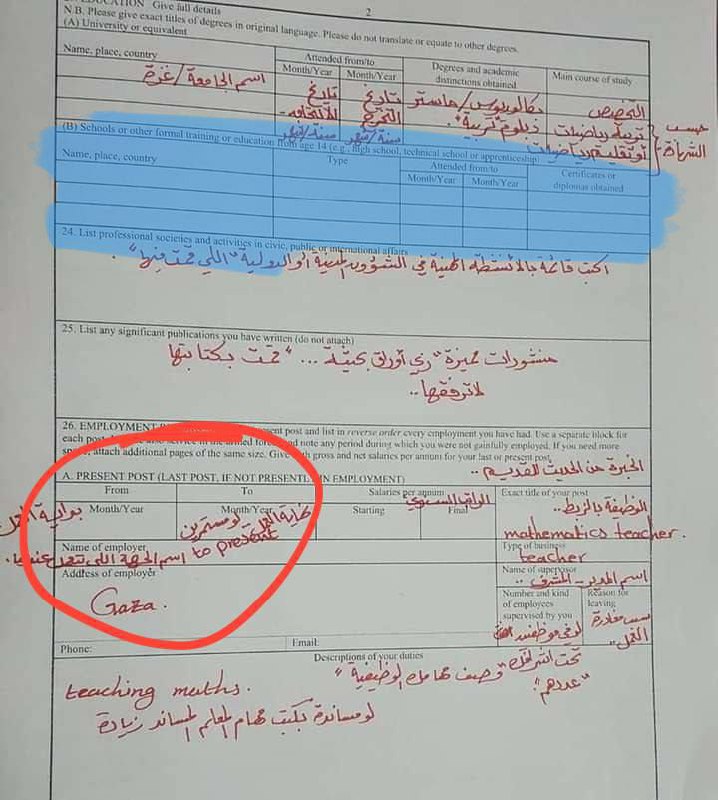 EDUCATION Give full details
2
N.B. Please give exact titles of degrees in original language. Please do not translate or equate to other degrees.
(A) University or equivalent
Name, place, country
Attended from/to
Month/Year
Month/Year
Degrees and academic distinctions obtained
Main course of study
اسم الجامعة/غزة
تاريخ
تاريخ التخرج
سنة/شهر
سنة/شهر
بكالوريوس/ماستر
دبلوم "تربية".
التخصص
تربية رياضيات
رياضيات
حسب الشهادة
(B) Schools or other formal training or education from age 14 (e.g., high school, technical school or apprenticeship)
Name, place, country
Type
Attended from/to
Month/Year
Month/Year
Certificates or diplomas obtained
24. List professional societies and activities in civic, public or international affairs
اكتب قائمة بالأنشطة المهنية في الشؤون المدنية أو الدولية "اللي قمت فيها".
25. List any significant publications you have written (do not attach)
منشورات مميزة "زي أوراق بحثية ..." قمت بكتابتها
لا ترفقها..
26. EMPLOYMENT
present post and list in reverse order every employment you have had. Use a separate block for
each post.
and note any period during which you were not gainfully employed. If you need more
attach additional pages of the same size. Give both gross and net salaries per annum for your last or present post.
الخبرة من الحديث للقديم..
A. PRESENT POST (LAST POST, IF NOT PRESENTLY IN EMPLOYMENT)
From
To
Month/Year
Month/Year
Salaries per annum
Starting
Final
Exact title of your post
بداية
لو مستمرين
to present
الراتب السنوي
الوظيفة بالزبط..
mathematics teacher.
Name of employer
اسم الجهة اللي
Type of business
teacher
Address of employer
Gaza.
Name of supervisor
اسم المدير - المشرف..
Number and kind of employees supervised by you
لو في موظفين
تحت اشرافك
"عددهم"
Reason for leaving
سبب مغادرة العمل..
Phone:
Email:
Descriptions of your duties
"وصف مهامك الوظيفية"
teaching maths.
لو مساندة بكتب مهام المعلم المساند زيادة